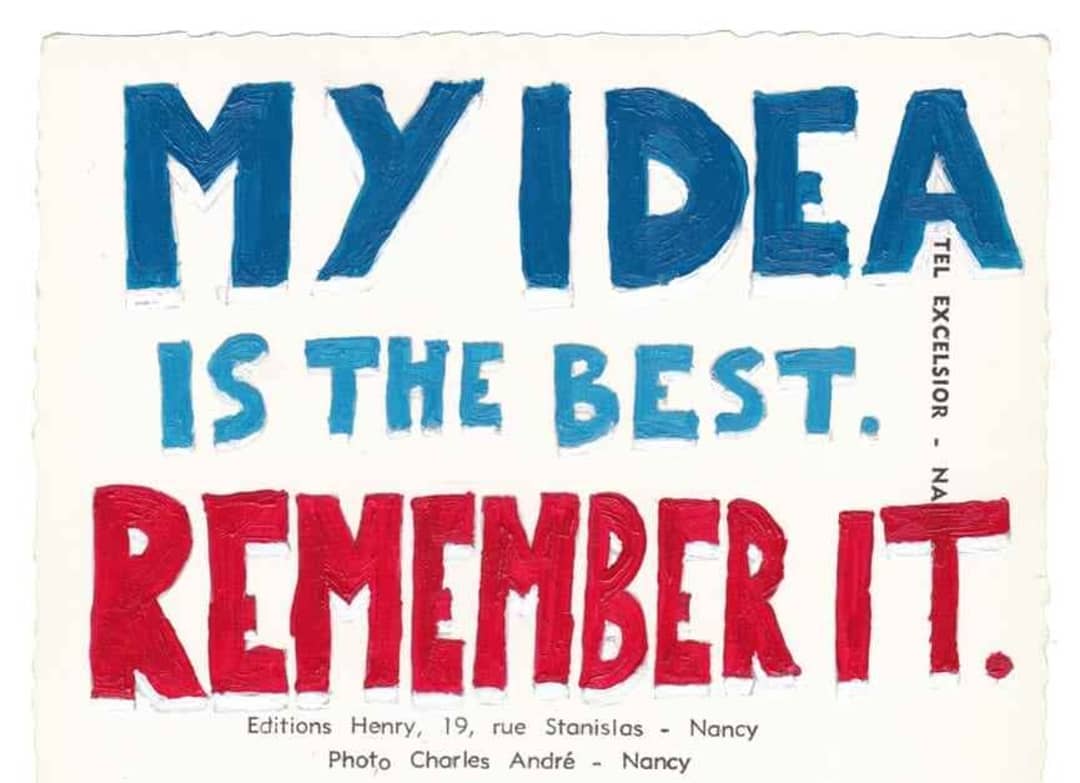 MY IDEA
IS THE BEST.
REMEMBER IT.
TEL EXCELSIOR - NA
Editions Henry, 19, rue Stanislas - Nancy
Photo Charles André - Nancy